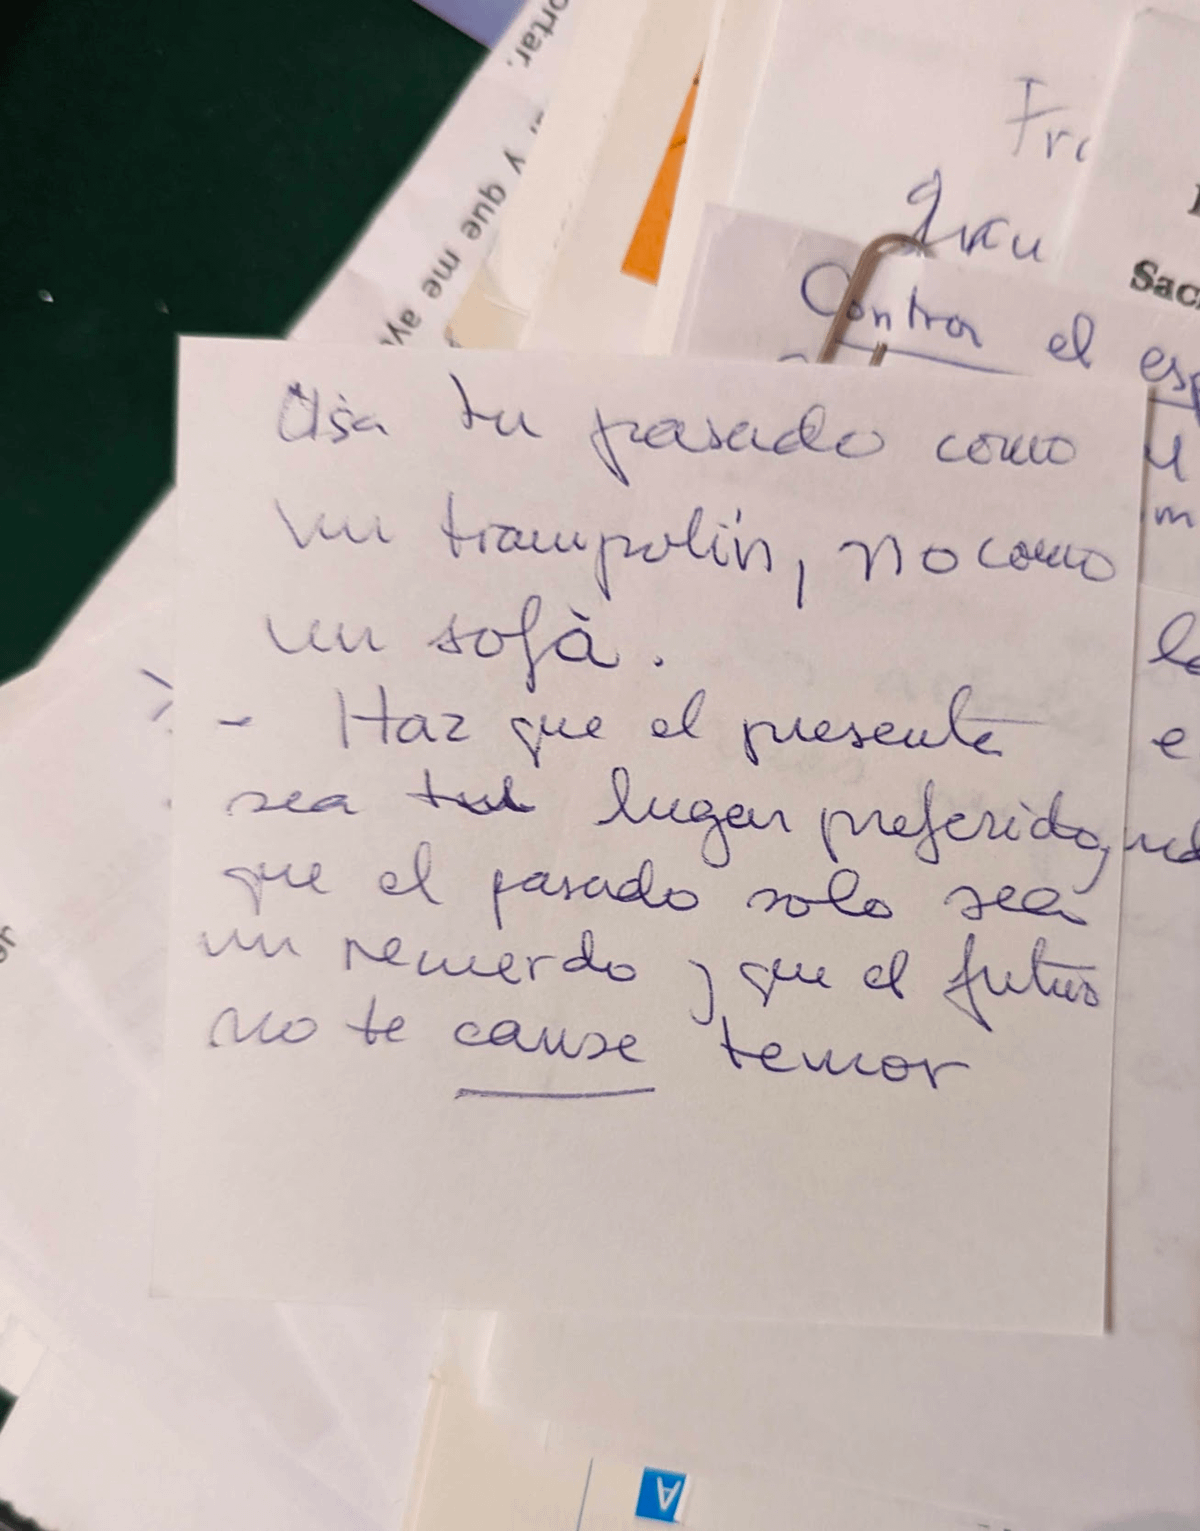 ortar.
y que me
Fra
Sac
Contra el esp
Usa tu pasado como
un trampolín, no como
un sofà.
- Haz que el presente
sea tu lugar preferido,
que el pasado solo sea
un recuerdo y que el futuro
no te cause temor
la
e
A